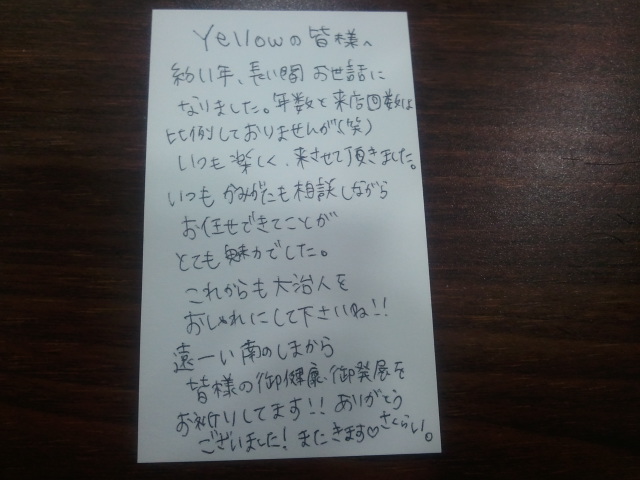 Yellowの皆様へ
約11年、長い間お世話に
なりました。年数と来店回数は
比例しておりませんが(笑)
いつも楽しく、来させて頂きました。
いつもかみがたも相談しながら
お任せできてことが
とても魅力でした。
これからも大治人を
おしゃれにして下さいね!!
遠ーい南のしまから
皆様の御健康、御発展を
お祈りしてます!! ありがとう
ございました!またきます♡さくらい。